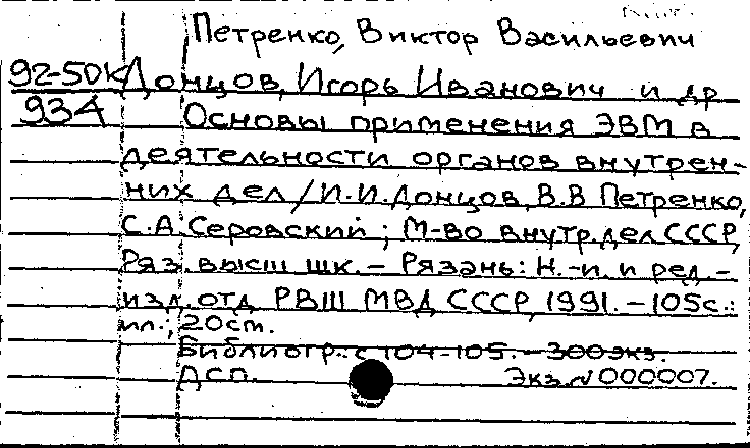 Петренко, Виктор Васильевич
92-5DK Донцов, Игорь Иванович и др
934 Основы применения ЭВМ в
деятельности органов внутрен-
них дел / И.И. Донцов, В.В Петренко,
С.А. Серовский ; М-во внутр. дел СССР,
Ряз. высш шк. – Рязань: Н.-и. и ред.-
изд. отд РВШ МВД СССР, 1991. – 105с.:
ил.; 20см.
Библиогр.: с 104-105. – 300экз.
ДСП. Экз. N 000007.